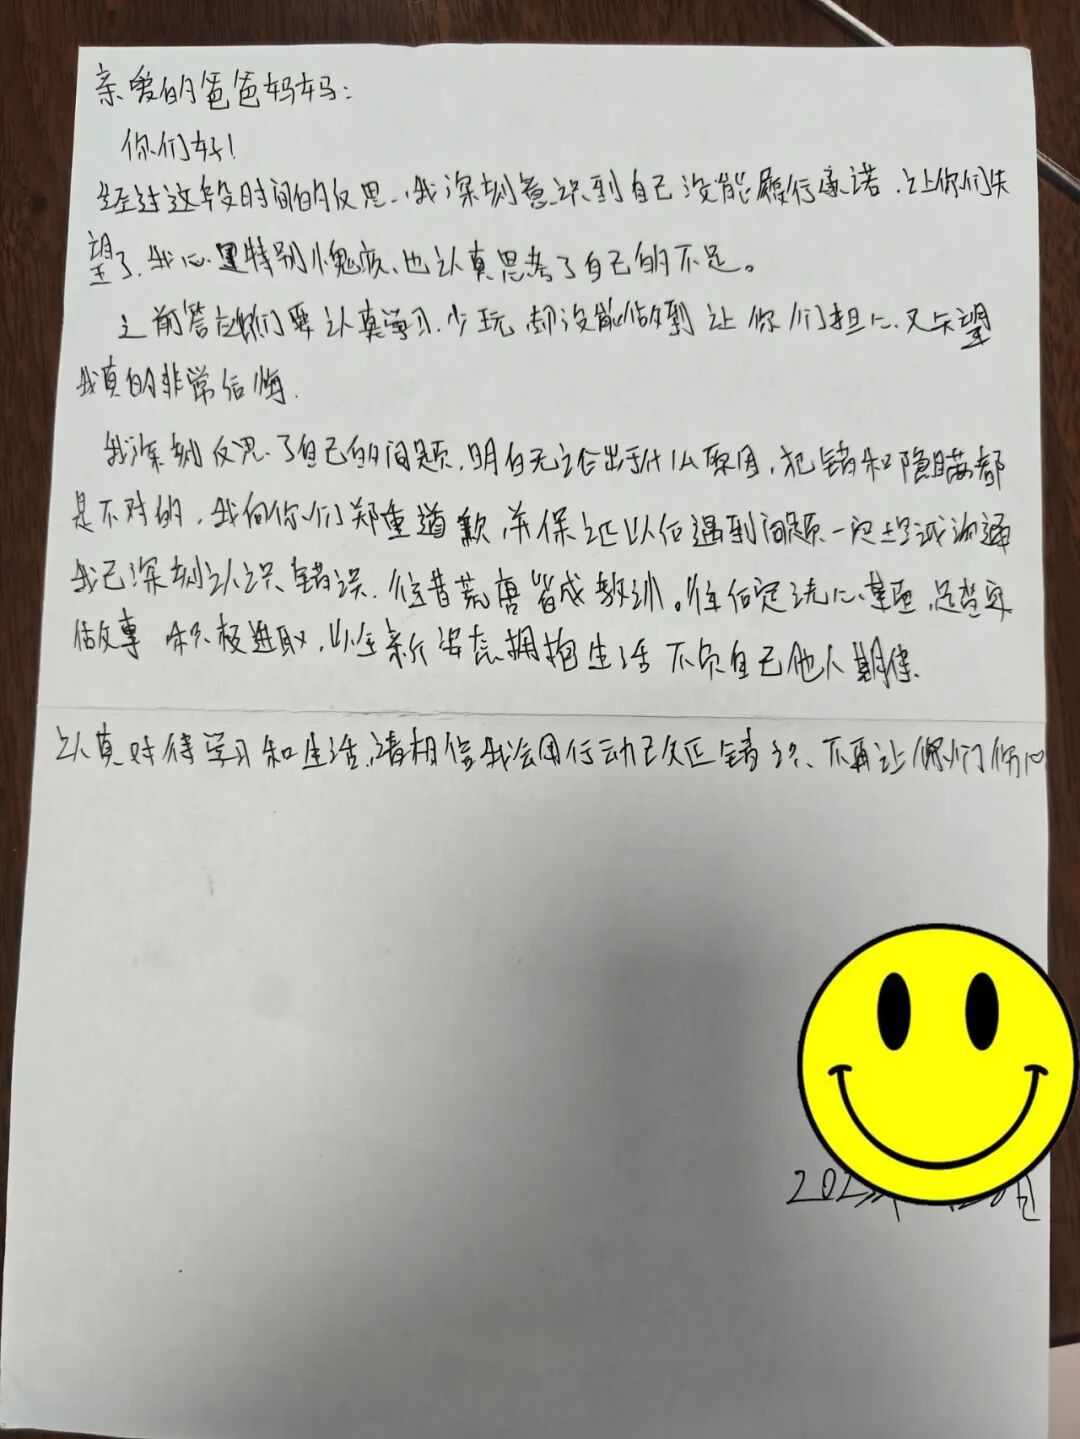 亲爱的爸爸妈妈:
你们好!
经过这段时间的反思,我深刻意识到自己没能履行承诺,让你们失
望了,我心里特别愧疚,也认真思考了自己的不足。
之前答应你们要认真学习,少玩,却没能做到让你们担心,又失望
我真的非常后悔.
我深刻反思了自己的问题,明白无论出于什么原因,犯错和隐瞒都
是不对的,我向你们郑重道歉,并保证以后遇到问题一定坦诚沟通
我已深刻认识错误.往昔荒唐皆成教训。往后定洗心革面,踏实
做事 积极进取,以全新姿态拥抱生活 不负自己他人期待.
认真对待学习和生活,请相信我会用行动 错 、不再让你们伤心
202